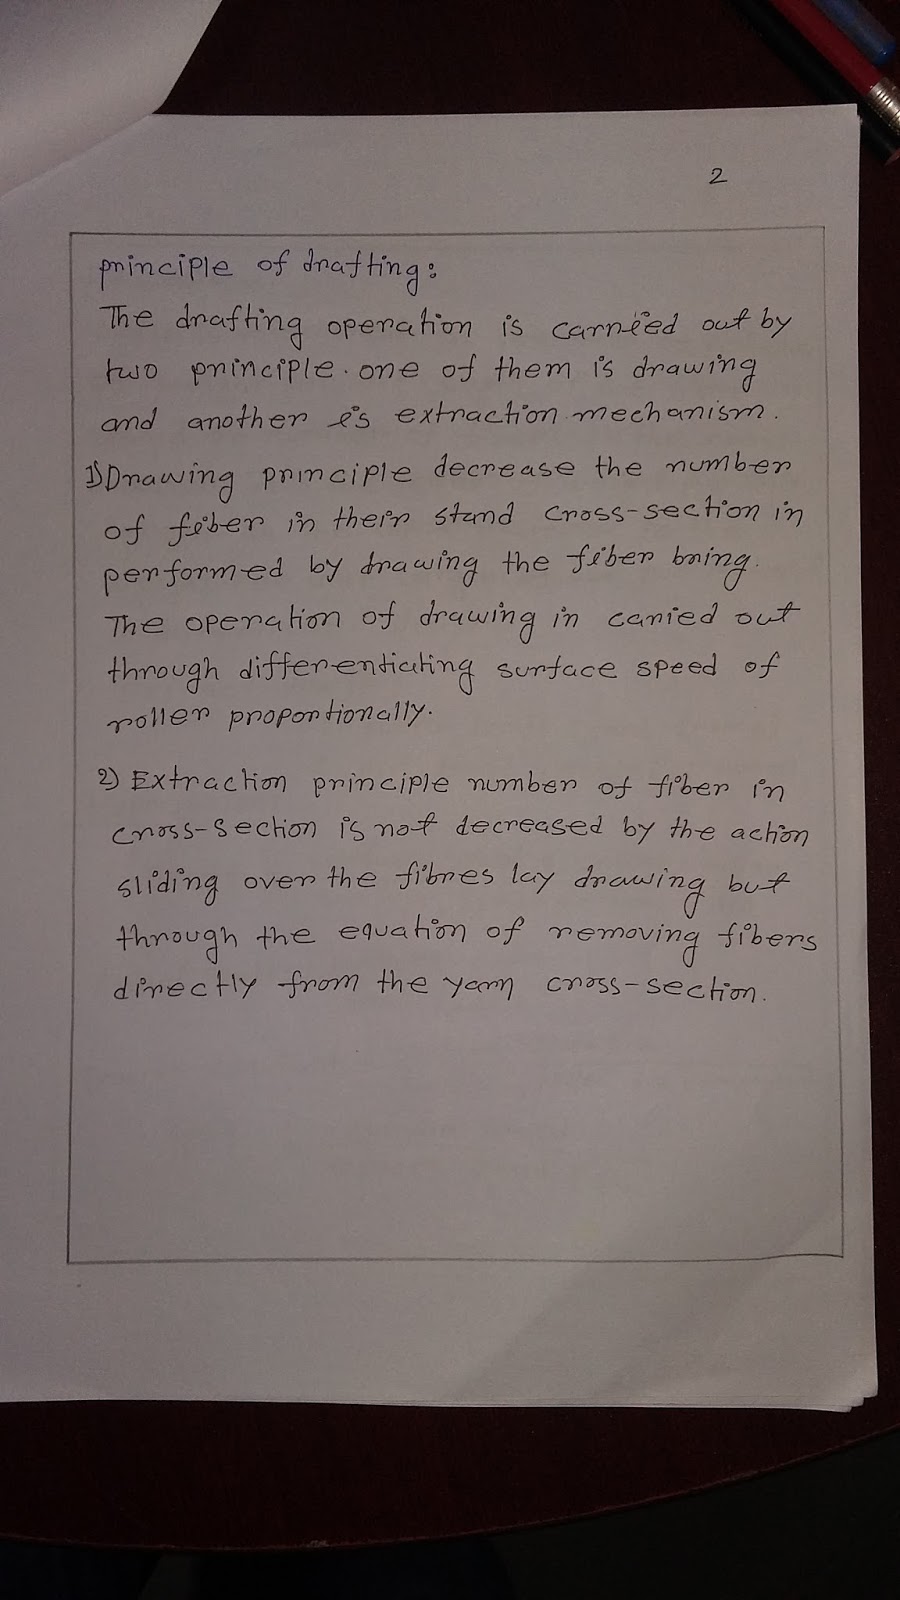 2
principle of drafting:
The drafting operation is carried out by
two principle. one of them is drawing
and another is extraction mechanism.
1) Drawing principle decrease the number
of fiber in their stand cross-section in
performed by drawing the fiber bring.
The operation of drawing in carried out
through differentiating surface speed of
roller proportionally.
2) Extraction principle number of fiber in
cross-section is not decreased by the action
sliding over the fibres lay drawing but
through the equation of removing fibers
directly from the yarn cross-section.